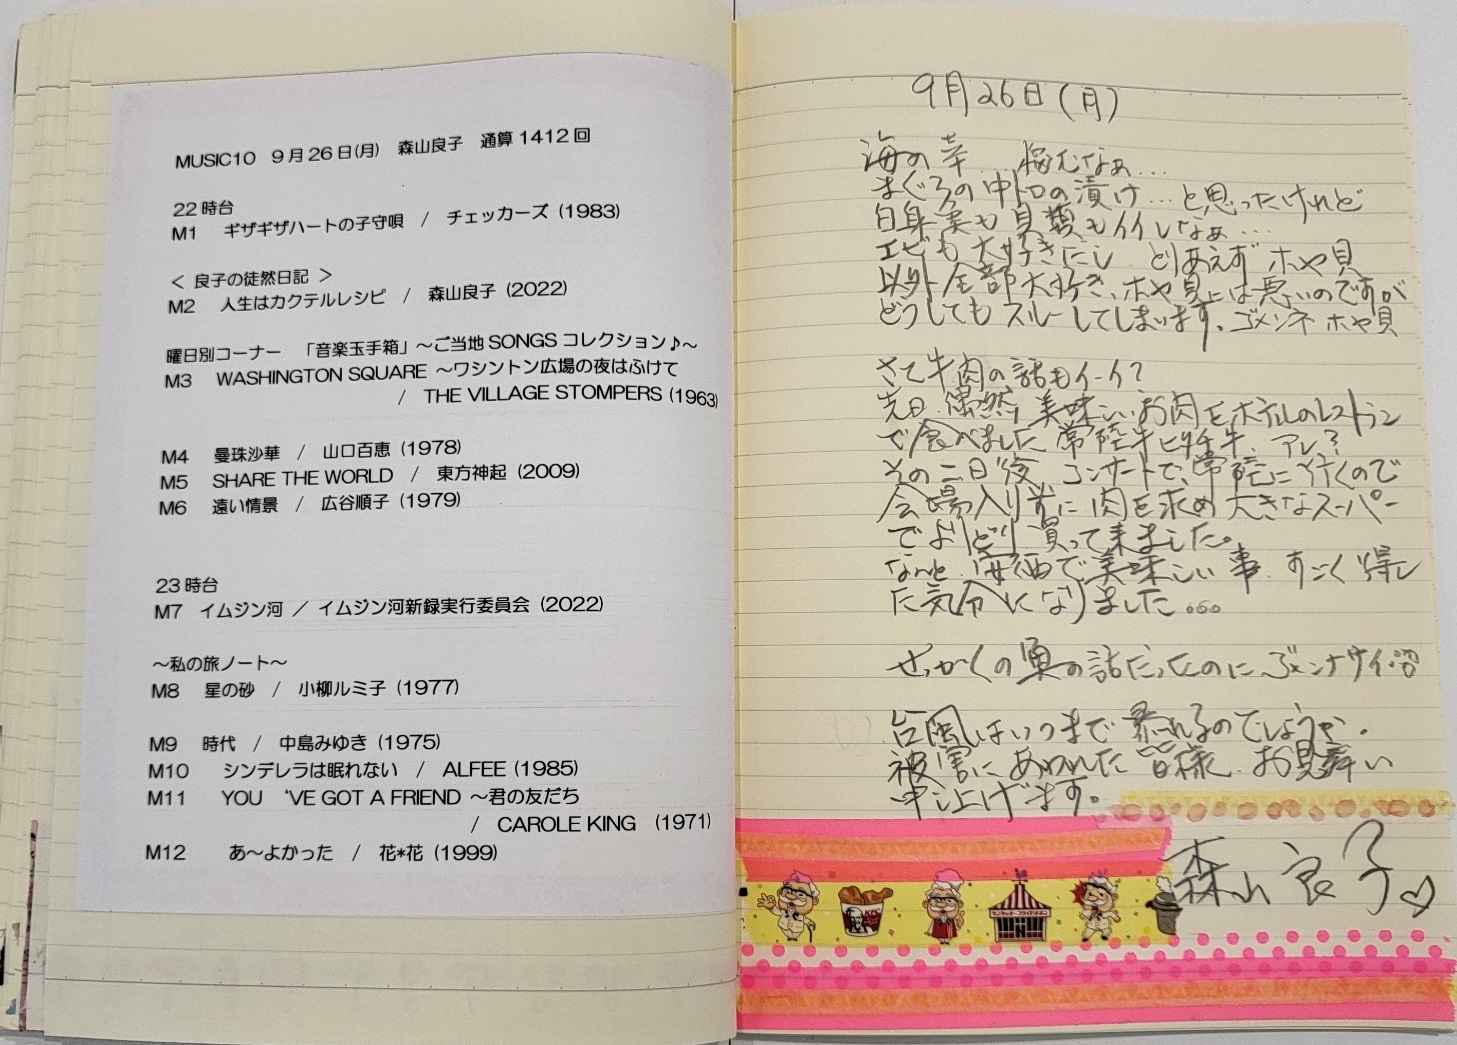 MUSIC10 9月26日(月) 森山良子 通算1412回
22時台
M1 ギザギザハートの子守唄 / チェッカーズ (1983)
< 良子の徒然日記 >
M2 人生はカクテルレシピ / 森山良子 (2022)
曜日別コーナー 「音楽玉手箱」～ご当地SONGSコレクション♪～
M3 WASHINGTON SQUARE ～ワシントン広場の夜はふけて
/ THE VILLAGE STOMPERS (1963)
M4 曼珠沙華 / 山口百恵 (1978)
M5 SHARE THE WORLD / 東方神起 (2009)
M6 遠い情景 / 広谷順子 (1979)
23時台
M7 イムジン河 / イムジン河新録実行委員会 (2022)
～私の旅ノート～
M8 星の砂 / 小柳ルミ子 (1977)
M9 時代 / 中島みゆき (1975)
M10 シンデレラは眠れない / ALFEE (1985)
M11 YOU 'VE GOT A FRIEND ～君の友だち
/ CAROLE KING (1971)
M12 あ～よかった / 花*花 (1999)
9月26日(月)
海の幸...悩むなぁ...
まぐろの中トロの漬け...と思ったけれど
白身も貝類もイイしなぁ...
エビも大好きだし とりあえず ホヤ貝
以外全部大好き、ホヤ貝には悪いのですが
どうしてもスルーしてしまいます、ゴメンネ ホヤ貝
さて牛肉の話もイーイ?
先日 偶然、美味しいお肉をホテルのレストラン
で食べました 常陸牛ヒタチ牛、アレ?
その二日後 コンサートで、常陸に行くので
会場入り前に 肉を求め 大きなスーパー
でよりどり 買って来ました。
なんと 安価で美味しい事、すごく得し
た気分になりました。。。
せっかくの魚の話だったのに ゴメンナサイ
台風はいつまで 暴れるのでしょうか。
被害にあわれた 皆様 お見舞い
申し上げます。
森山良子♡
KFC